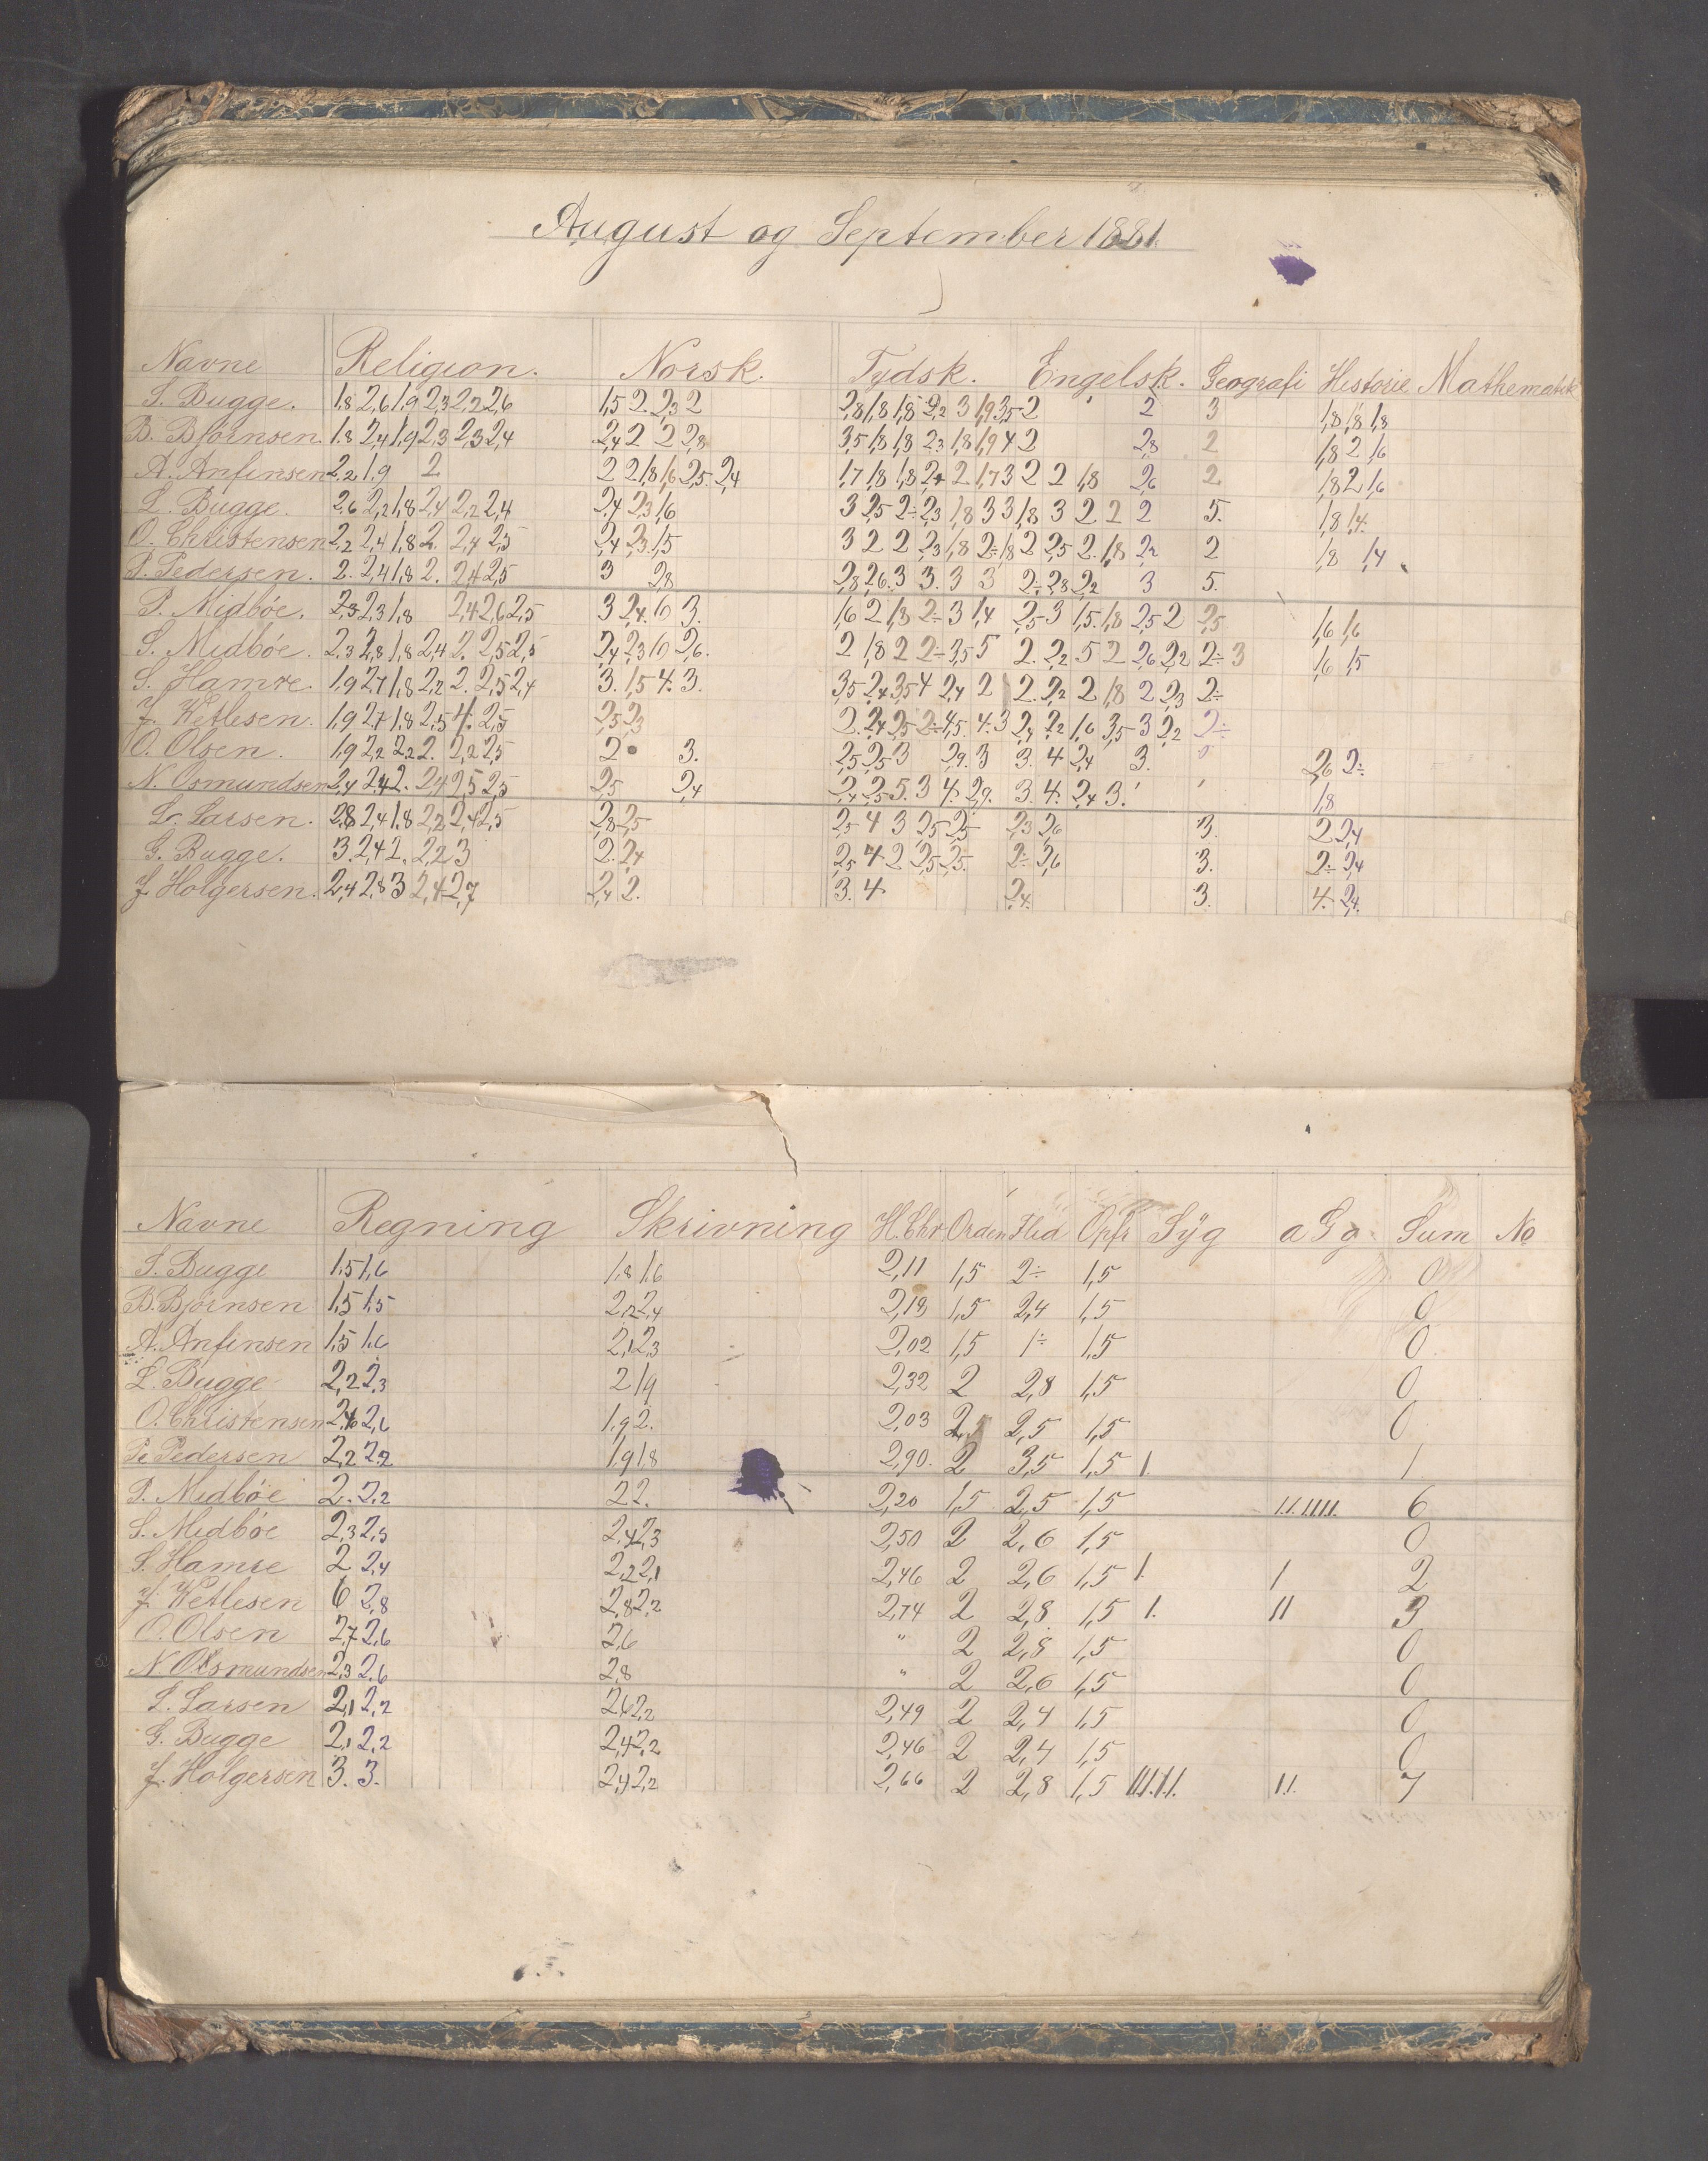 August og September 1881.
Navne Religion. Norsk. Tydsk. Engelsk. Geografi Historie Mathematik
S. Bugge. 1,8 2,6 1,9 2,3 2,2 2,6 1,5 2. 2,3 2 2,8 1,8 1,8 2,2 3 1,9 3,5 2 2 3 1,8 1,8 1,8
B. Bjørnsen. 1,8 2,4 1,9 2,3 2,3 2,4 2,4 2 2 2,8 3,5 1,8 1,8 2,3 1,8 1,9 4 2 2,8 2 1,8 2 1,6
A. Anfinsen 2,2 1,9 2 2 2 1,8 1,6 2,5 2,4 1,7 1,8 1,8 2,4 2 1,7 3 2 2 1,8 2,6 2 1,8 2 1,6
L. Bugge. 2,6 2,2 1,8 2,4 2,2 2,4 2,4 2,3 1,6 3 2,5 2÷ 2,3 1,8 3 3 1,8 3 2 2 2 5. 1,8 1,4.
O. Christensen 2,2 2,4 1,8 2. 2,4 2,5 2,4 2,3 1,5 3 2 2 2,3 1,8 2÷ 1,8 2 2,5 2. 1,8 2 1,8 1,4
P. Pedersen. 2. 2,4 1,8 2. 2,4 2,5 3 2,8 2,8 2,6. 3 3. 3 3 2÷ 2,8 2,2 3 5.
P. Midbøe. 2,3 2,3 1,8 2,4 2,6 2,5 3 2,4. 1,6 3. 1,6 2 1,8 2÷ 3 1,4 2,5 3 1,5. 1,8 2,5 2 2,5 1,6 1,6
S. Midbøe. 2,3 2,8 1,8 2,4 2. 2,5 2,5 2,4 2,3 1,6 2,6. 2 1,8 2 2÷ 3,5 5 2. 2,2 5 2 2,6 2,2 2÷ 3 1,6 1,5
S. Hamre. 1,9 2,7 1,8 2,2 2. 2,5 2,4 3. 1,5 4. 3. 3,5 2,4 3,5 4 2,4 2 2. 2,2 2 1,8 2 2,3 2÷
J. Wetlesen. 1,9 2,7 1,8 2,5 4. 2,5 2,5 2,3 2. 2,4 2,5 2÷ 4,5. 4. 3 2,4 2,2 1,6 3,5 3 2,2 2÷
O. Olsen. 1,9 2,2 2,2 2. 2,2 2,5 2 3. 2,5 2,5 3 2,9. 3 3. 4 2,4 3. 2,6 2÷
N. Osmundsen 2,4 2,4 2. 2,4 2,5 2,5 2,5 2,4 2,4 2,5 5. 3 4. 2,9. 3. 4. 2,4 3. 1,8
L. Larsen. 2,8 2,4 1,8 2,2 2,4 2,5 2,8 2,5 2,5 4 3 2,5 2,5 2,3 2,6 3. 2 2,4
G. Bugge. 3. 2,4 2. 2,2 3 2. 2,4 2,5 4 2 2,5 2,5. 2÷ 2,6 3. 2÷ 2,4
J Holgersen. 2,4 2,8 3 2,4 2,7 2,4 2. 3. 4. 2,4. 3. 4. 2,4.
Navne Regning Skrivning H. Chr Orden Flid Opfr Syg a G g. Sum No
S. Bugge 1,5 1,6 1,8 1,6 2,11 1,5 2÷ 1,5 0
B. Bjørnsen 1,5 1,5 2,2 2,4 2,18 1,5 2,4 1,5 0
A. Anfinsen 1,5 1,6 2,1 2,3 2,02 1,5 1÷ 1,5 0
L. Bugge 2,2 2,3 2 1,9 2,32 2 2,8 1,5 0
O. Christensen 2,6 1,9 2. 2,03 2,5 2,5 1,5 0
P. Pedersen 2,2 2,2 1,9 1,8 2,90. 2 3,5 1,5 1. 1
P. Midbøe 2. 2,2 2 2. 2,20 1,5 2,5 1,5 11.1111. 6
S. Midbøe 2,3 2,5 2,4 2,3 2,50 2 2,6 1,5 0
S. Hamre 2 2,4 2,2 2,1 2,46 2 2,6 1,5 1. 1 2
J. Wetlesen 6 2,8 2,8 2,2 2,74 2 2,8 1,5 1. 11 3
O. Olsen 2,7 2,6 2,6 " 2 2,8 1,5 0
N. Osmundsen 2,3 2,6 2,8 " 2 2,6 1,5 0
L. Larsen 2,1 2,2 2,6 2,2 2,49 2 2,4 1,5 0
G. Bugge 2,1 2,2 2,4 2,2 2,46 2 2,4 1,5 0
J. Holgersen 3. 3. 2,4 2,2 2,66 2 2,8 1,5 111.1.1. 11. 7